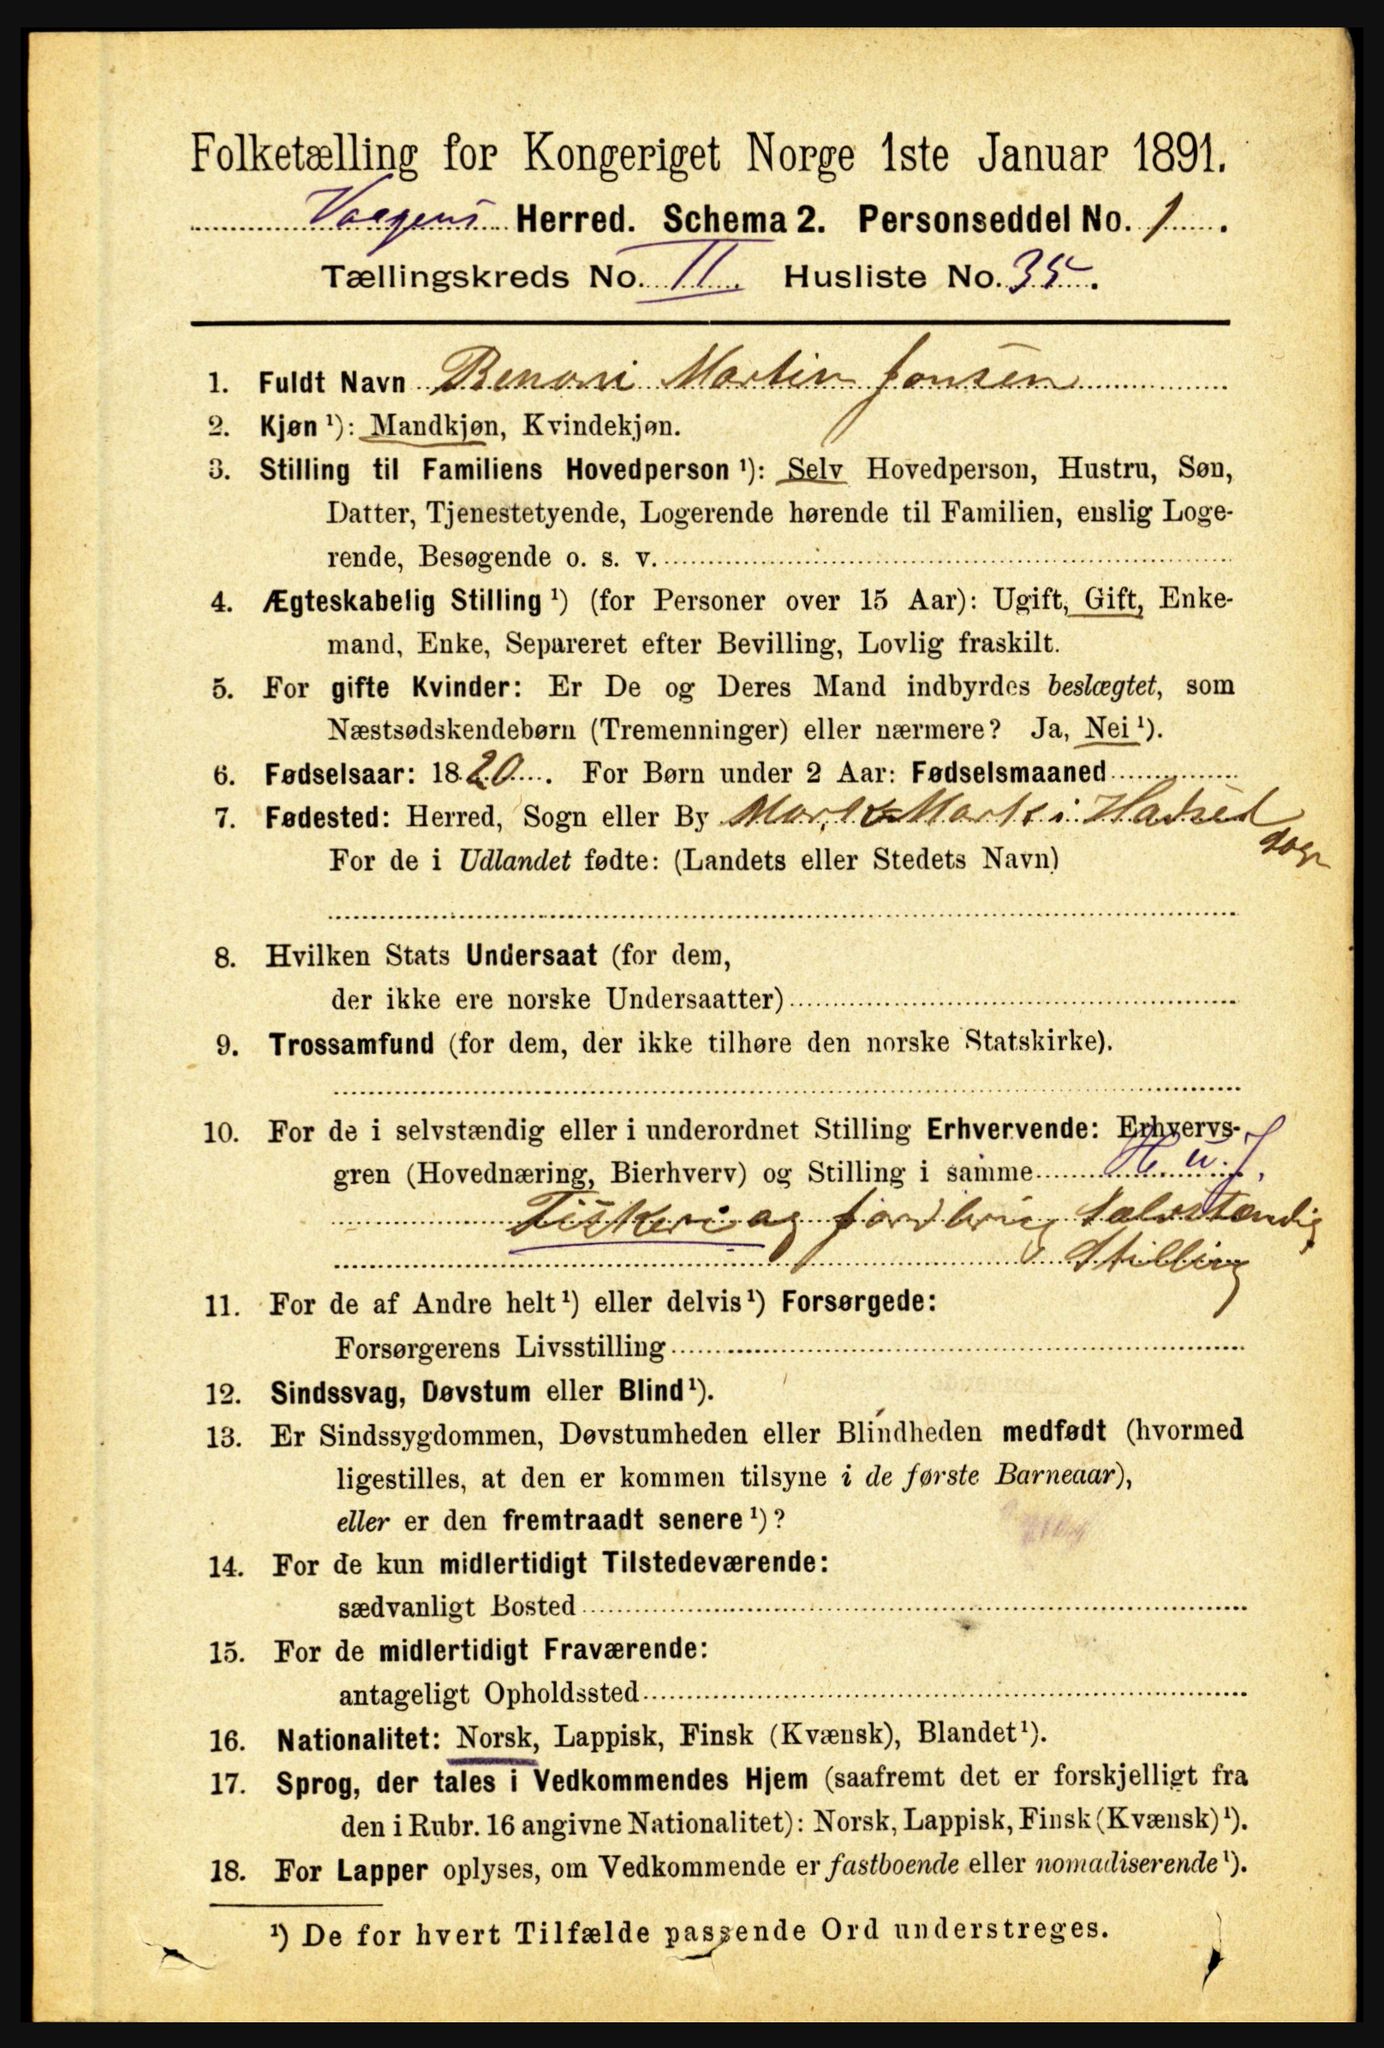 Folketælling for Kongeriget Norge 1ste Januar 1891.
Vaagens Herred. Schema 2. Personseddel No. 1.
Tællingskreds No. II. Husliste No. 35.
1. Fuldt Navn Benoni Martin Jonsen
2. Kjøn ¹): Mandkjøn, Kvindekjøn.
3. Stilling til Familiens Hovedperson ¹): Selv Hovedperson, Hustru, Søn,
Datter, Tjenestetyende, Logerende hørende til Familien, enslig Loge-
rende, Besøgende o. s. v.
4. Ægteskabelig Stilling ¹) (for Personer over 15 Aar): Ugift, Gift, Enke-
mand, Enke, Separeret efter Bevilling, Lovlig fraskilt.
5. For gifte Kvinder: Er De og Deres Mand indbyrdes beslægtet, som
Næstsødskendebørn (Tremenninger) eller nærmere? Ja, Nei ¹).
6. Fødselsaar: 1820. For Børn under 2 Aar: Fødselsmaaned
7. Fødested: Herred, Sogn eller By i Hadsel
Sogn
For de i Udlandet fødte: (Landets eller Stedets Navn)
8. Hvilken Stats Undersaat (for dem,
der ikke ere norske Undersaatter)
9. Trossamfund (for dem, der ikke tilhøre den norske Statskirke).
10. For de i selvstændig eller i underordnet Stilling Erhvervende: Erhvervs-
gren (Hovednæring, Bierhverv) og Stilling i samme
Fiskeri og Jordbrug Selvstændig
Stilling
11. For de af Andre helt ¹) eller delvis ¹) Forsørgede:
Forsørgerens Livsstilling
12. Sindssvag, Døvstum eller Blind ¹).
13. Er Sindssygdommen, Døvstumheden eller Blindheden medfødt (hvormed
ligestilles, at den er kommen tilsyne i de første Barneaar),
eller er den fremtraadt senere ¹)?
14. For de kun midlertidigt Tilstedeværende:
sædvanligt Bosted
15. For de midlertidigt Fraværende:
antageligt Opholdssted
16. Nationalitet: Norsk, Lappisk, Finsk (Kvænsk), Blandet ¹).
17. Sprog, der tales i Vedkommendes Hjem (saafremt det er forskjelligt fra
den i Rubr. 16 angivne Nationalitet): Norsk, Lappisk, Finsk (Kvænsk) ¹).
18. For Lapper oplyses, om Vedkommende er fastboende eller nomadiserende ¹).
¹) De for hvert Tilfælde passende Ord understreges.